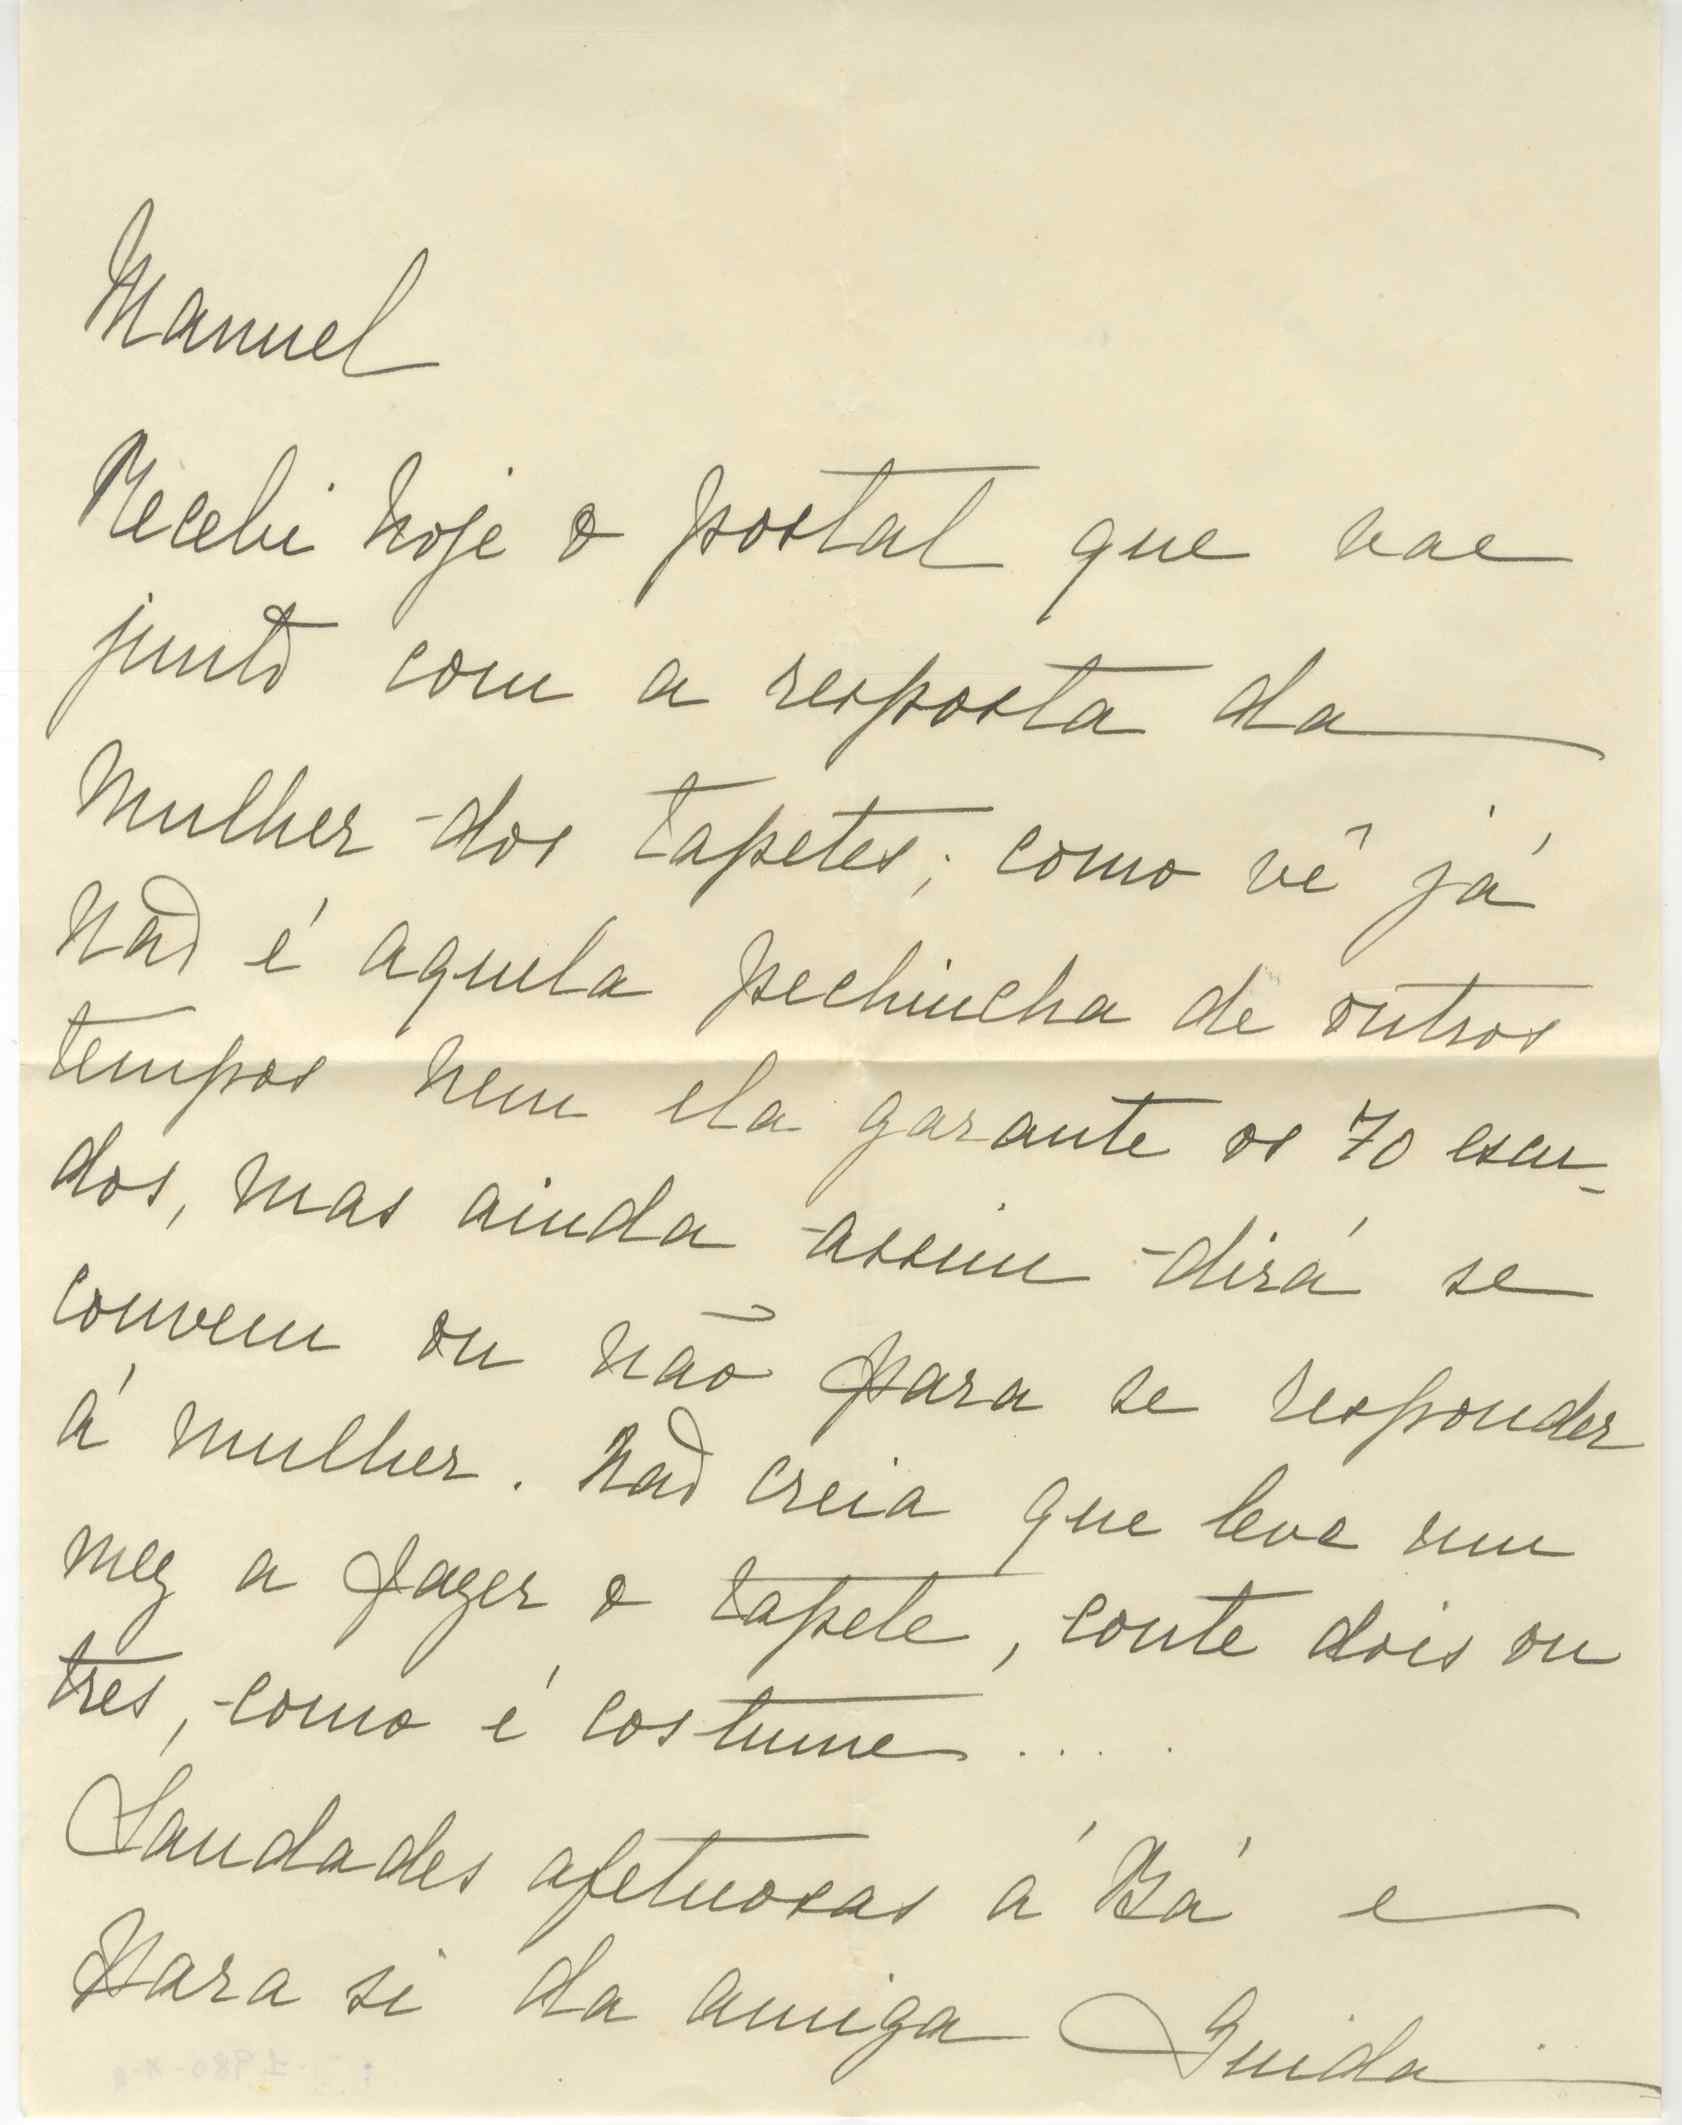 Manuel
Recebi hoje o postal que vae
junto com a resposta da
mulher dos tapetes; como vê já
não é aquela pechincha de outros
tempos nem ela garante os 70 escu-
dos, mas ainda assim dirá se
convem ou não para se responder
á mulher. Não creia que leve um
mez a fazer o tapete, conte dois ou
tres, como é costume....
Saudades afetuosas á Bá e
para si da amiga Guida